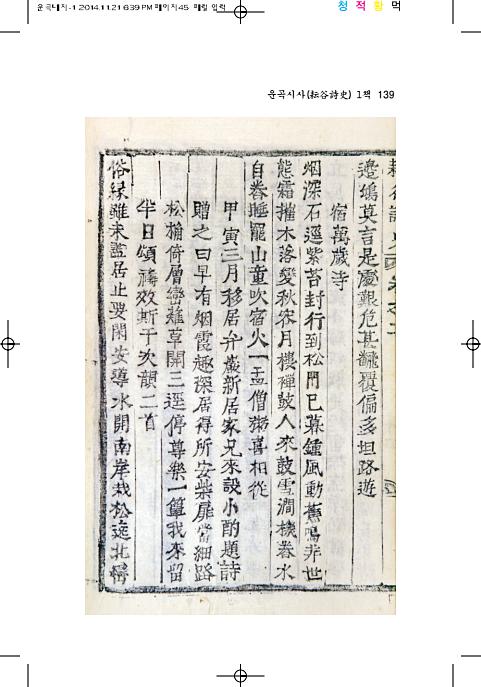 운곡내지-1 2014.11.21 6:39 PM 페이지45 매킨 입력
청 적 황 먹
운곡시사(耘谷詩史) 1책 139
邉塢莫言是處艱危甚飜覆偏多坦路遊
宿萬歲寺
烟深石逕紫苔封行到松門已暮鍾風動蕉鳴非世
態霜摧木落變秋容月樓禪鼓人來鼓雪澗機舂水
自舂睡罷山童吹宿火一盂僧粥喜相從
甲寅三月移居弁巖新居家兄來設小酌題詩
贈之曰早有烟霞趣深居得所安柴扉當細路
松檜倚層巒薙草開三逕停尊樂一簞我來留
半日頌禱效斯干次韻二首
俗緣雖未盡居止要閑安導水開南岸栽松逸北巒